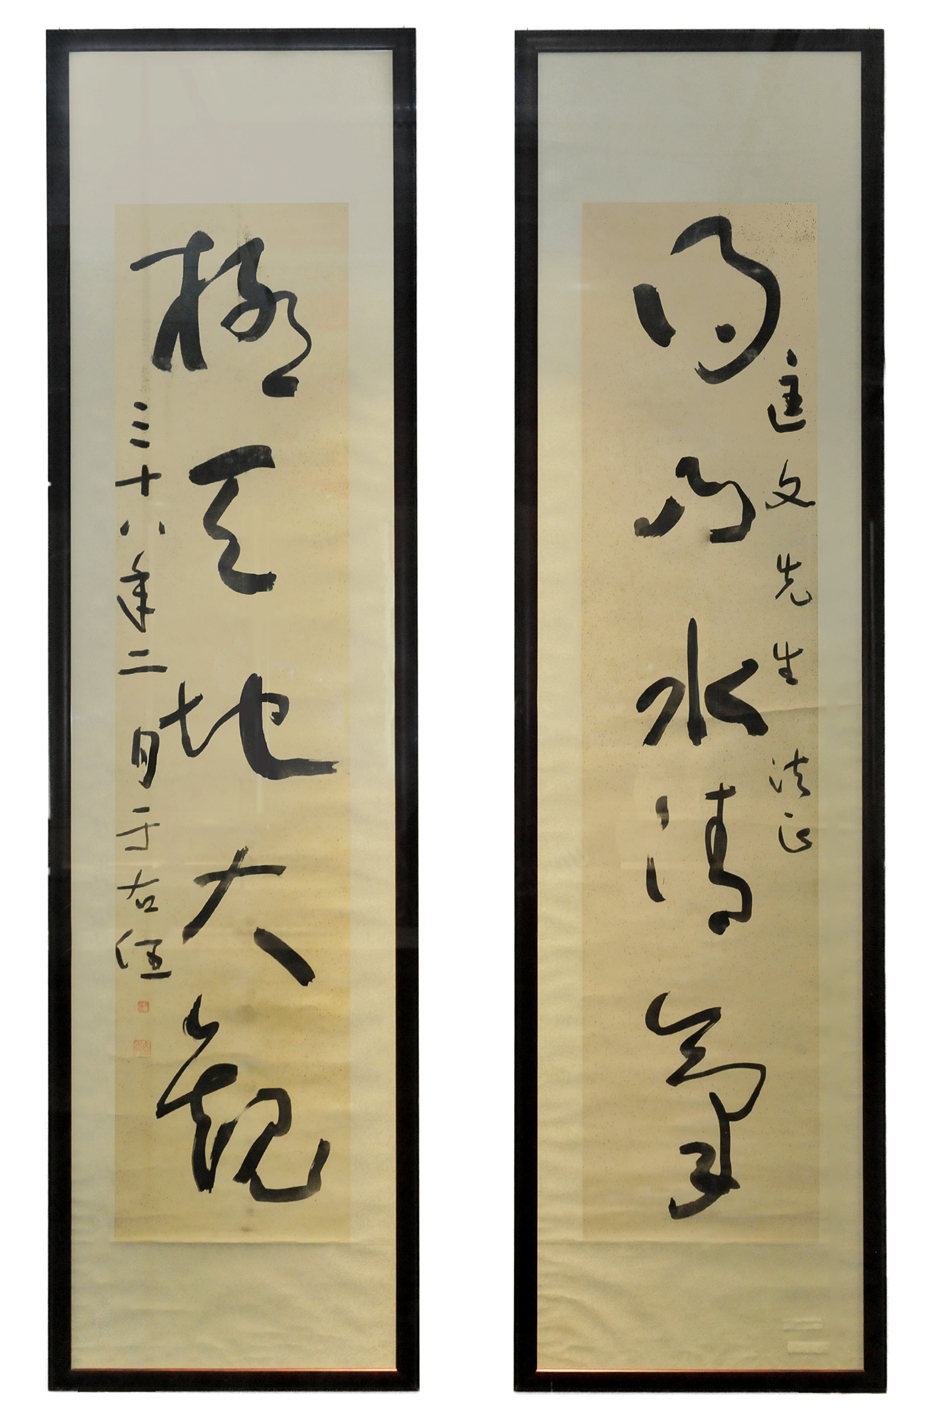 匡文先生法正
得山水清氣
極天地大觀
三十八年二月于右任